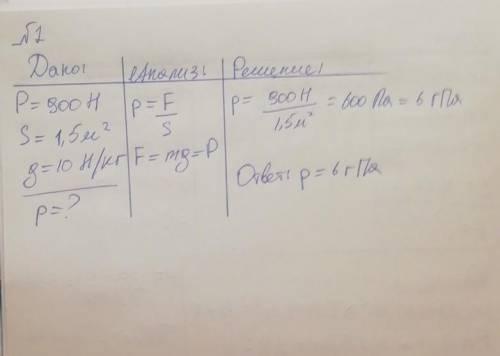 №1
Дано:
P = 900 Н
S = 1,5 м²
g = 10 Н/кг
p = ?
Анализ:
p = F/S
F = mg = P
Решение:
p = 900 Н / 1,5 м² = 600 Па = 6 гПа
Ответ: p = 6 гПа